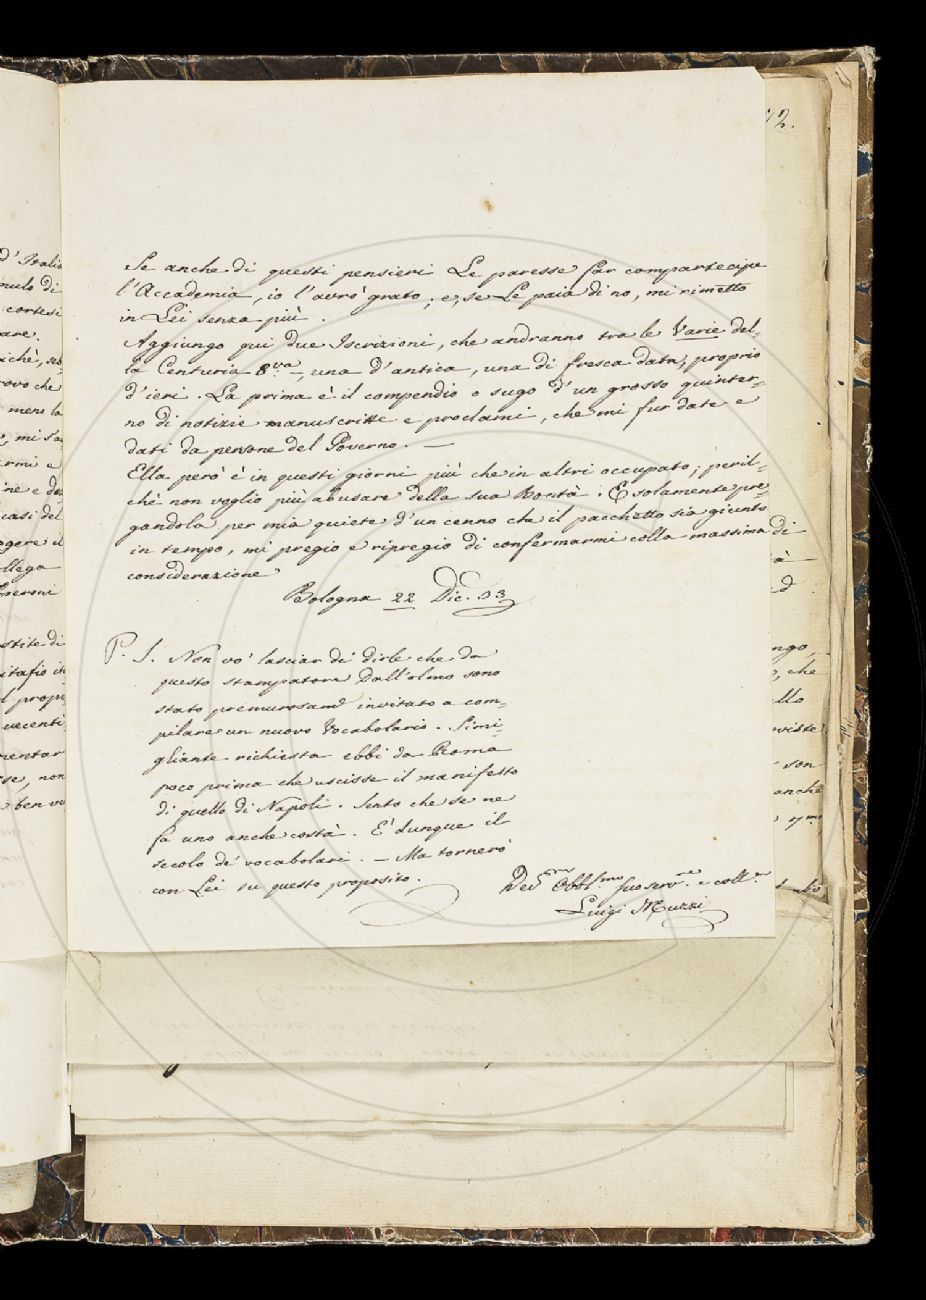 72.
Se anche di questi pensieri Le paresse far compartecipe
l'Accademia, io l'avrò grato; e, se Le paia di no, mi rimetto
in Lei senza più.
Aggiungo qui due Iscrizioni, che andranno tra le Varie del-
la Centuria 8.va, una d'antica, una di fresca data, proprio
d'ieri. La prima è il compendio o sugo d'un grosso quinter-
no di notizie manuscritte e proclami, che mi fur date e
dati da persone del Governo. —
Ella però è in questi giorni più che in altri occupato; peril-
chè non voglio più abusare della sua bontà. E solamente pre-
gandola per mia quiete d'un cenno che il pacchetto sia giunto
in tempo, mi pregio e ripregio di confermarmi colla massima di
considerazione
Bologna 22 Dic. 33
P. S. Non vo' lasciar di dirle che da
questo stampatore Dall'olmo sono
stato premurosam.e invitato a com-
pilare un nuovo Vocabolario. Simi-
gliante richiesta ebbi da Roma
poco prima che uscisse il manifesto
di quello di Napoli. Sento che se ne
fa uno anche costà. È dunque il
secolo de' vocabolari. — Ma tornerò
con Lei su questo proposito.
Dev.mo Obbl.smo suo serv.re e coll.a
Luigi Muzzi
d'Italia
mulo di
cortesi
are.
rovo che
meno la
ermi e
casi del
llega
stite di
recenti
mentar
non
ben vo
ngo,
che
llo
son
anche